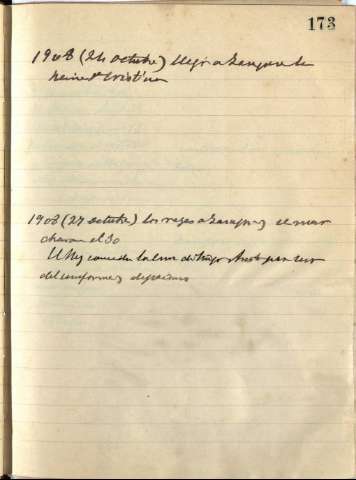 173
1908 (24 octubre) llegó a Zaragoza la
Reina Dª Cristina
1908 (27 octubre) los reyes a Zaragoza y se mar
charon el 30
El Rey concede la cruz de
del uniforme y